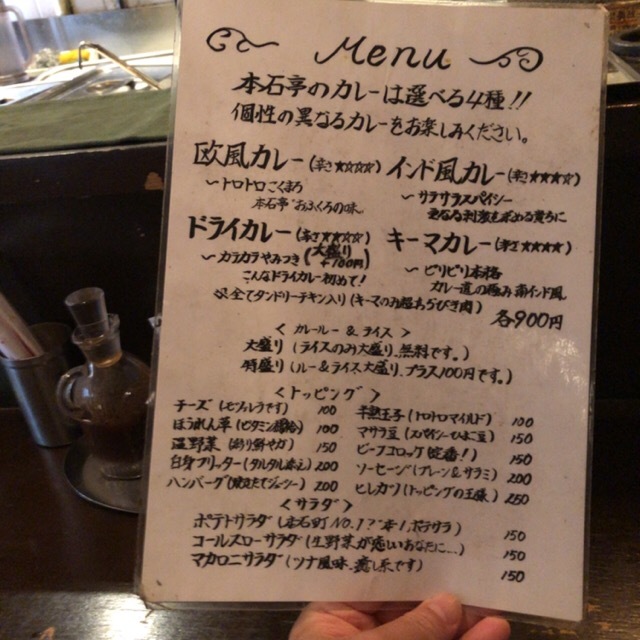 Menu
本石亭のカレーは選べる4種!!
個性の異なるカレーをお楽しみください。
欧風カレー(辛さ★☆☆☆)
～トロトロこくまろ
本石亭"おふくろの味"
インド風カレー(辛さ★★★☆)
～サラサラスパイシー
更なる刺激を求める貴方に
ドライカレー(辛さ★★☆☆)
～カラカラやみつき(大盛り+100円)
こんなドライカレー初めて!
キーマカレー(辛さ★★★★)
～ピリピリ本格
カレー道の極み南インド風
全てタンドリーチキン入り(キーマのみ鶏あらびき肉)
各900円
＜カレールー＆ライス＞
大盛り(ライスのみ大盛り、無料です。)
特盛り(ルー＆ライス大盛り、プラス100円です。)
＜トッピング＞
チーズ(モツァレラです) 100
ほうれん草(ビタミン補給) 100
温野菜(彩り鮮やか) 150
白身フリッター(タルタル添え) 200
ハンバーグ(焼きたてジューシー) 200
半熟玉子(トロトロマイルド) 100
マサラ豆(スパイシーひよこ豆) 150
ビーフコロッケ(定番!) 150
ソーセージ(プレーン＆サラミ) 200
ヒレカツ(トッピングの王様) 250
＜サラダ＞
ポテトサラダ(本石町NO.1?ポテサラ) 150
コールスローサラダ(生野菜が恋しいあなたに…) 150
マカロニサラダ(ツナ風味、癒し系です) 150